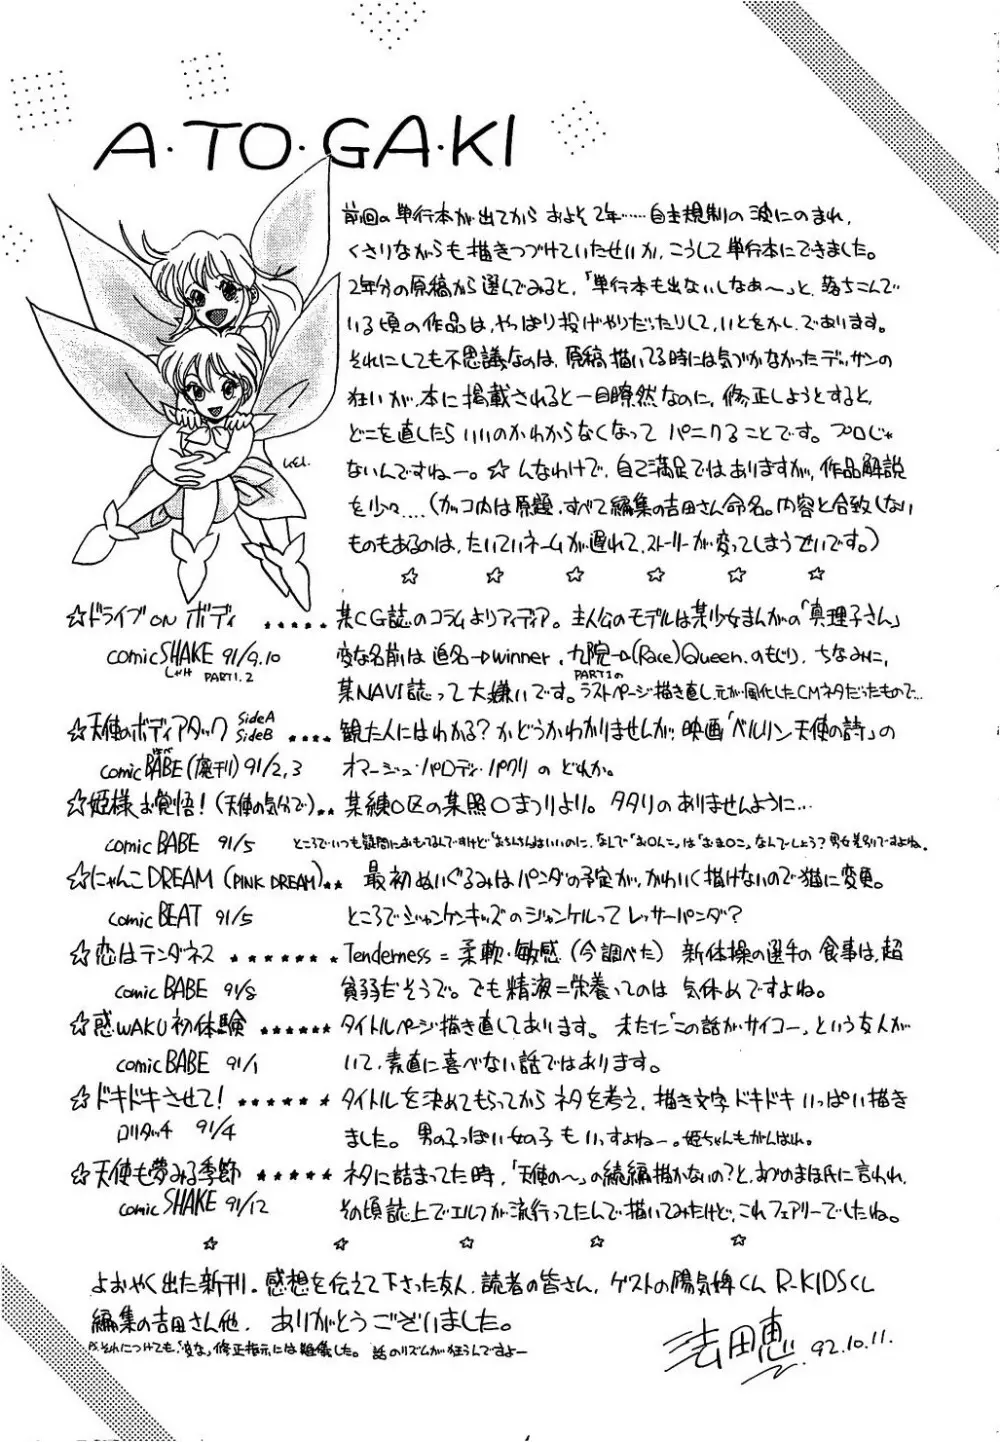 A・TO・GA・KI
前回の単行本が出てからおよそ2年……自主規制の波にのまれ、
くさりながらも描きつづけていたせいか、こうして単行本にできました。
2年分の原稿から選んでみると、「単行本も出ないしなあ〜」と、落ちこんで
いる頃の作品は、やっぱり投げやりだったりして、いとをかし、であります。
それにしても不思議なのは、原稿描いてる時には気づかなかったデッサンの
狂いが、本に掲載されると一目瞭然なのに、修正しようとすると、
どこを直したらいいのかわからなくなってパニクることです。プロじゃ
ないんですねー。☆んなわけで、自己満足ではありますが、作品解説
を少々…(カッコ内は原題、すべて編集の吉田さん命名。内容と合致しない
ものもあるのは、たいていネームが遅れて、ストーリーが変ってしまうせいです。)
☆ ☆ ☆ ☆ ☆ ☆
☆ドライブONボディ ・・・・・ 某CG誌のコラムよりアイディア。主人公のモデルは某少女まんがの「真理子さん」
comic SHAKE 91/9.10 変な名前は 追名→winner、九院→(Race)Queen のもじり、ちなみに、
PART1.2 某NAVI誌って大嫌いです。PART1のラストページ描き直し、元が風化したCMネタだったもので…
☆天使のボディアタック SideA SideB ・・・・ 観た人にはわかる?かどうかわかりませんが、映画「ベルリン天使の詩」の
comic BABE(廃刊) 91/2,3 オマージュ・パロディ・パクリのどれか。
☆姫様お覚悟!(天使の気分で)・・ 某練○区の某照○まつりより。タタリのありませんように…
comic BABE 91/5 ところでいつも疑問におもてるんですけど「おちんちんはいいのに、なんで「お○んこ」は「おま○こ」なんでしょう?男女差別ですよね。
☆にゃんこDREAM(PINK DREAM)・・ 最初ぬいぐるみはパンダの予定が、かわいく描けないので猫に変更。
comic BEAT 91/5 ところでジャンケンキッズのジャンケルってレッサーパンダ?
☆恋はテンダネス ・・・・・・・ Tenderness=柔軟・敏感(今調べた) 新体操の選手の食事は、超
comic BABE 91/8 貧弱だそうで。でも精液=栄養ってのは気休めですよね。
☆惑WAKU初体験 ・・・・・・ タイトルページ描き直してあります。未だに「この話がサイコー」、という友人が
comic BABE 91/1 いて、素直に喜べない話ではあります。
☆ドキドキさせて! ・・・・・・ タイトルを決めてもらってからネタを考え、描き文字ドキドキいっぱい描き
ロリタッチ 91/4 ました。男の子っぽい女の子もいいっすよねー。姫ちゃんもがんばれ。
☆天使も夢みる季節 ・・・・・ ネタに詰まってた時、「天使の〜」の続編描かないの?と、あづめまほ氏に言われ、
comic SHAKE 91/12 その頃誌上でエルフが流行ってたんで描いてみたけど、これフェアリーでしたね。
☆ ☆ ☆ ☆ ☆
よおやく出た新刊。感想を伝えて下さった友人、読者の皆さん、ゲストの陽気婢くん R-KIDSくん
編集の吉田さん他、ありがとうございました。
それにつけても、「変な」修正指示には難儀した。話のリズムが狂うんですよー
法田恵 92.10.11.